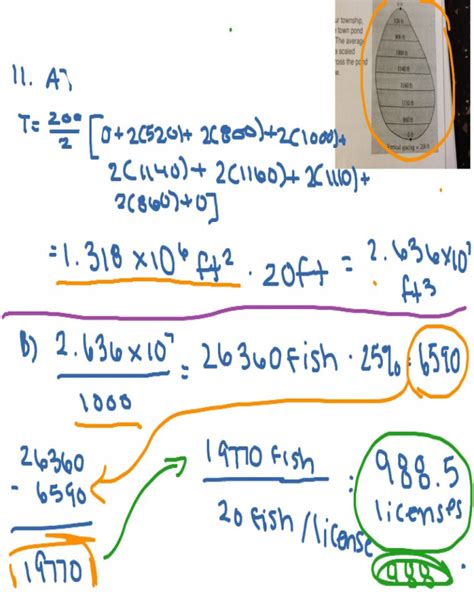 ur township,
town pond
The averag
scaled
ross the pond
w.
0 ft
520 ft
800 ft
1000 ft
1140 ft
1160 ft
1110 ft
860 ft
0 ft
Vertical spacing = 200 ft
11. A)
T = 200/2 [0+2(520)+2(800)+2(1000)+
2(1140)+2(1160)+2(1110)+
2(860)+0]
= 1.318 × 10⁶ ft² · 20ft = 2.636×10⁷
ft3
B) 2.636×10⁷/1000 = 26360 fish · 25% = 6590
26360
- 6590
19770
19770 fish
20 fish/license
= 988.5
licenses
988